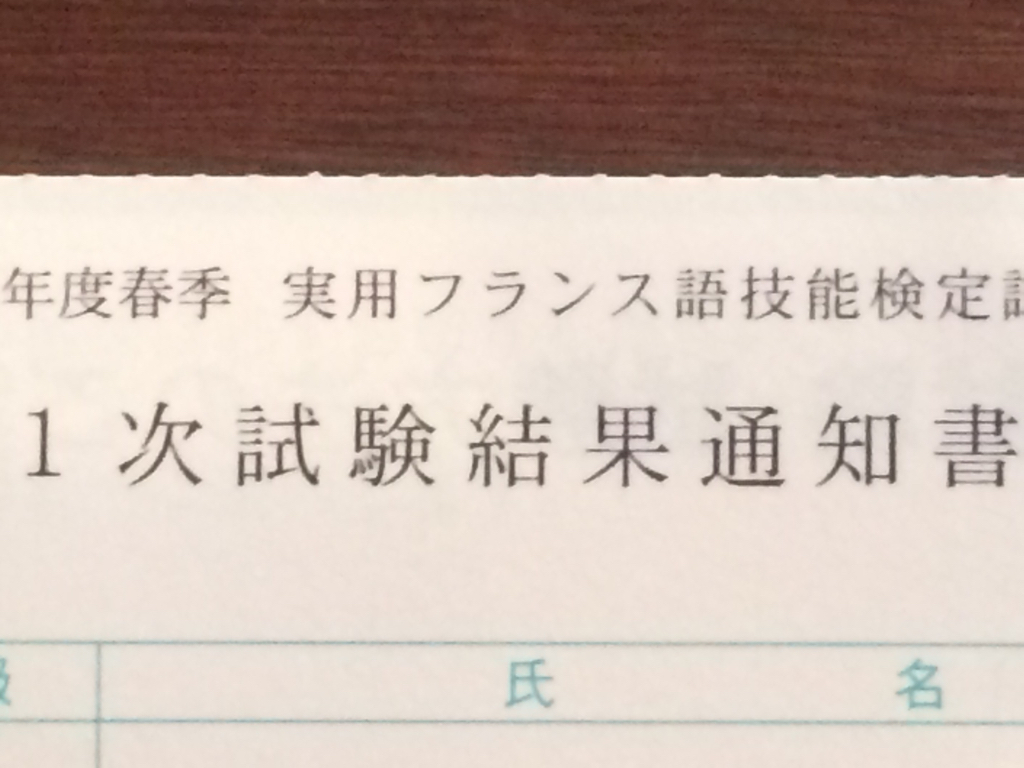 年度春季 実用フランス語技能検定試
1次試験結果通知書
級 氏 名